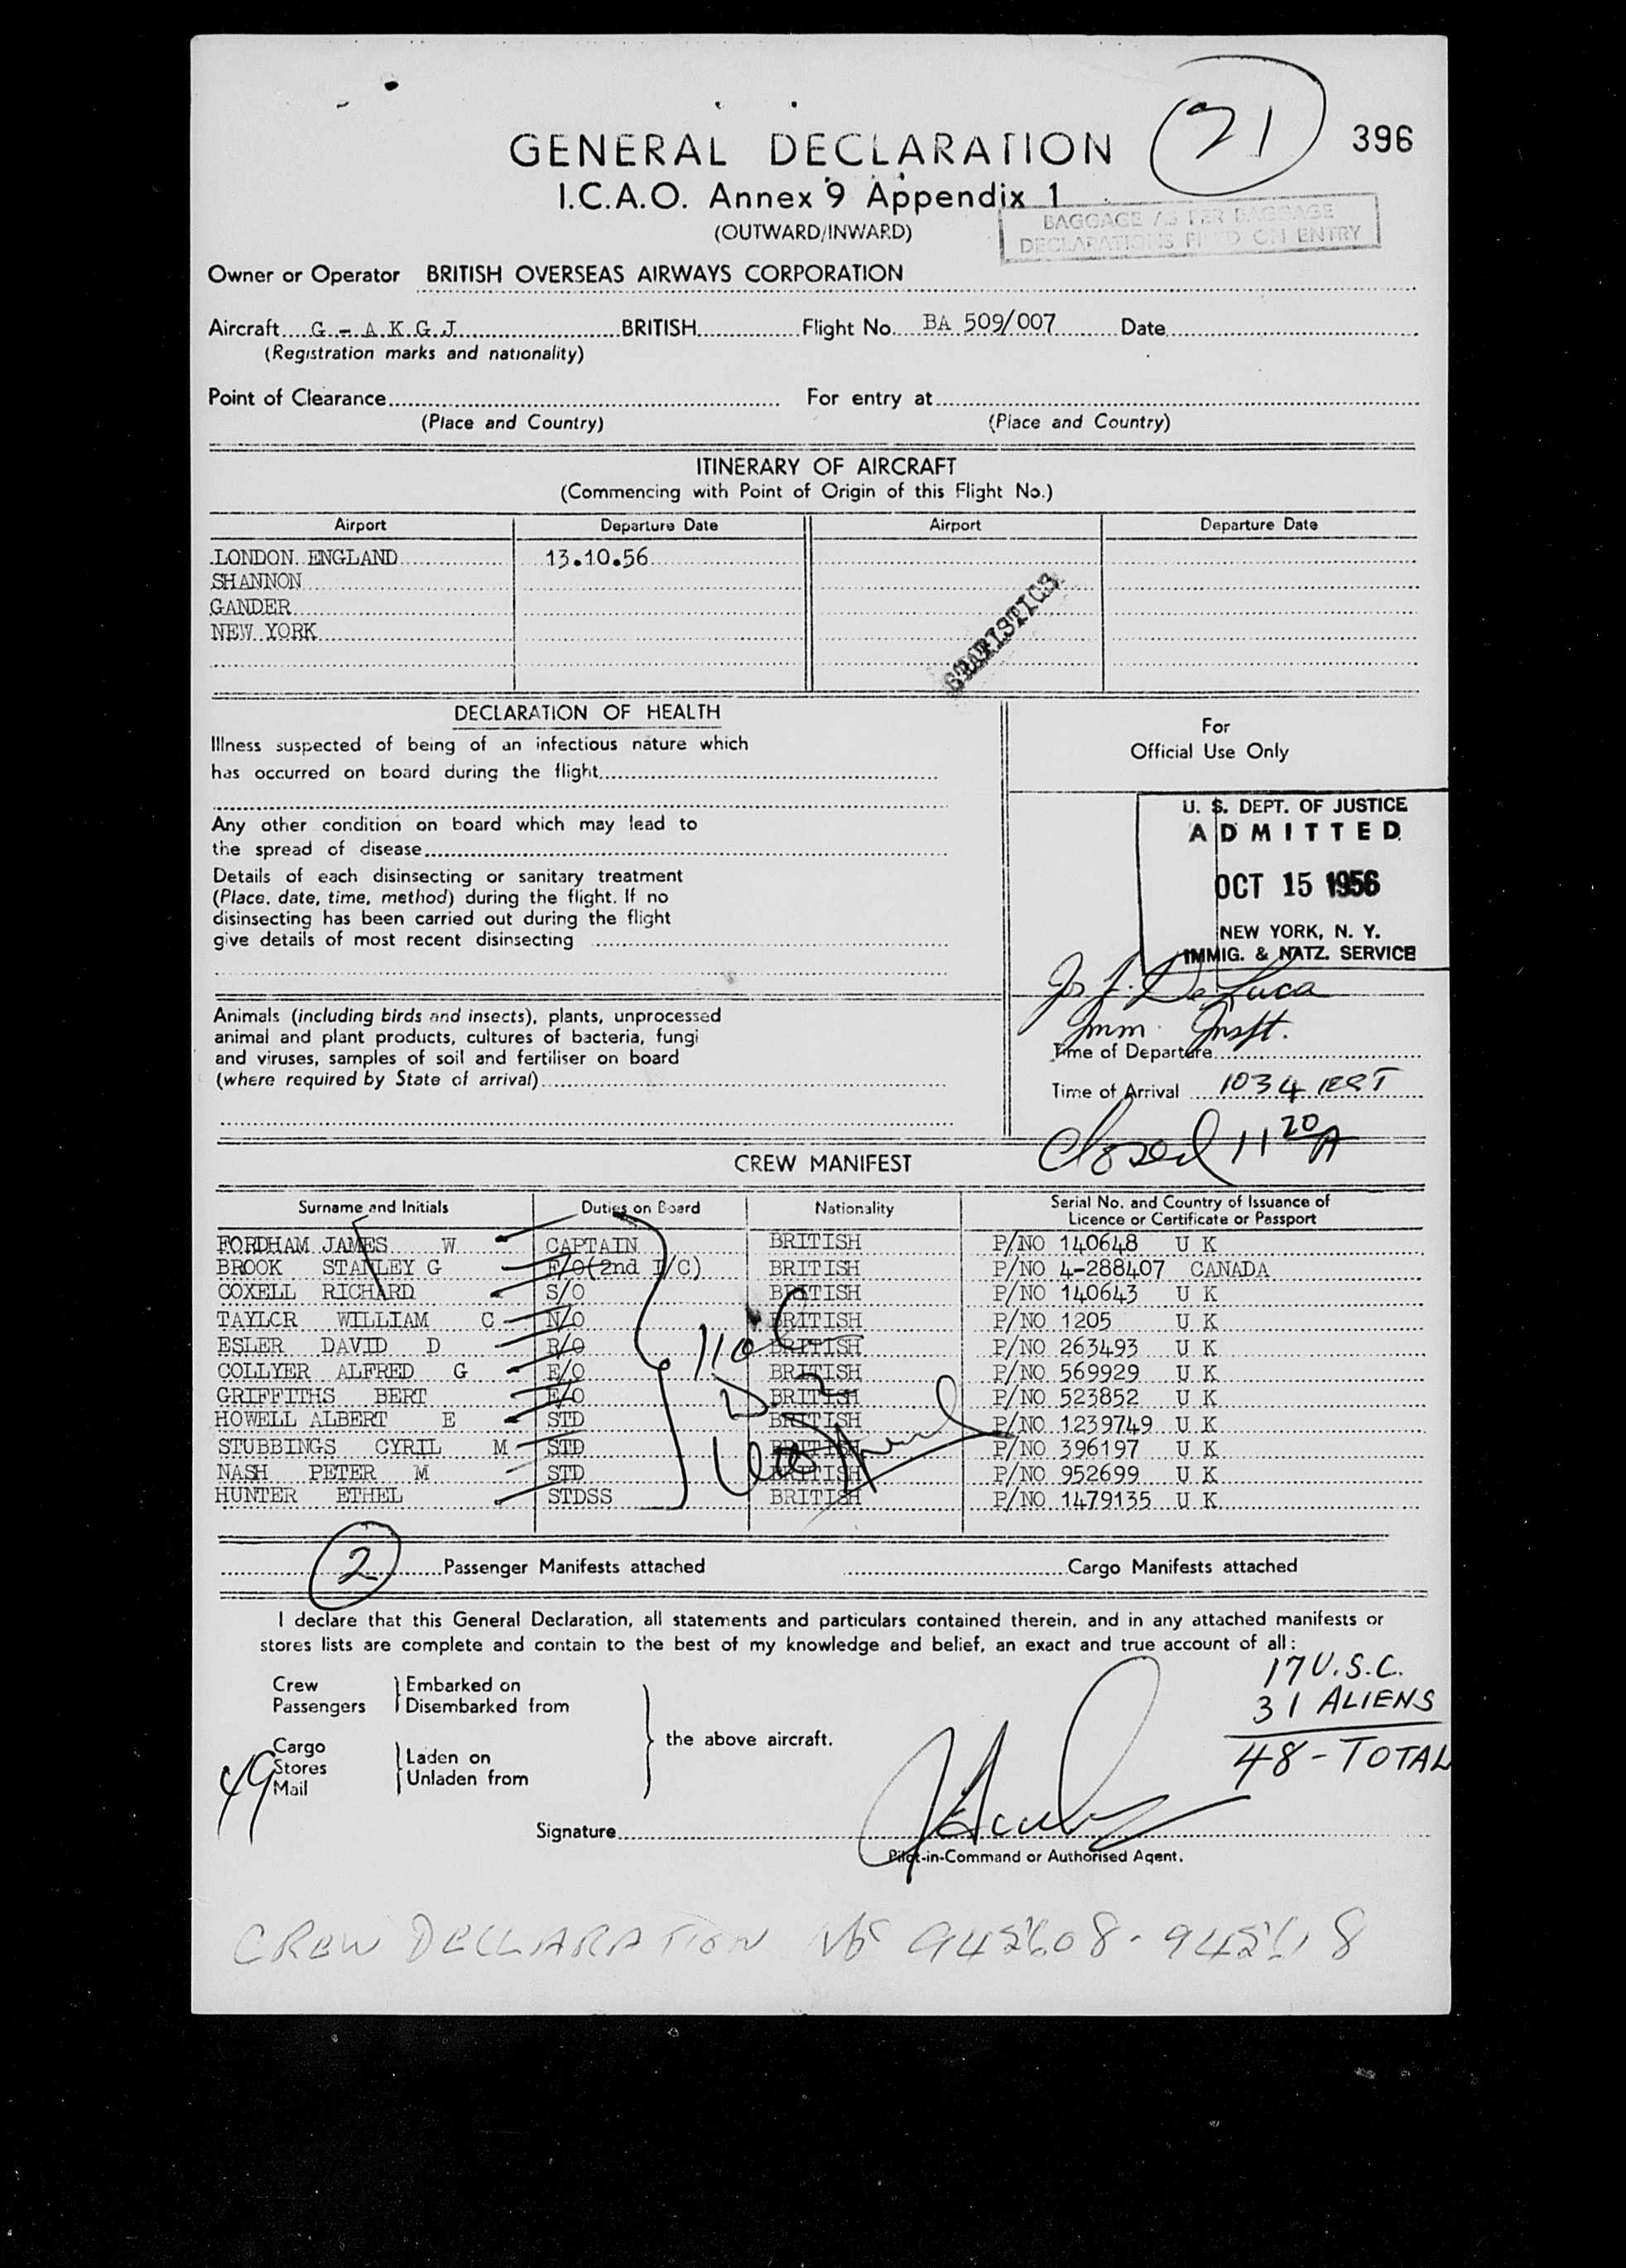 21
396
GENERAL DECLARATION
I.C.A.O. Annex 9 Appendix 1
(OUTWARD/INWARD)
BAGGAGE AS PER BAGGAGE
DECLARATIONS FILED ON ENTRY
Owner or Operator BRITISH OVERSEAS AIRWAYS CORPORATION
Aircraft G - A K G J BRITISH Flight No. BA 509/007 Date
(Registration marks and nationality)
Point of Clearance For entry at
(Place and Country) (Place and Country)
ITINERARY OF AIRCRAFT
(Commencing with Point of Origin of this Flight No.)
Airport Departure Date Airport Departure Date
LONDON ENGLAND 13.10.56
SHANNON
GANDER
NEW YORK
DECLARATION OF HEALTH
Illness suspected of being of an infectious nature which
has occurred on board during the flight
Any other condition on board which may lead to
the spread of disease
Details of each disinsecting or sanitary treatment
(Place, date, time, method) during the flight. If no
disinsecting has been carried out during the flight
give details of most recent disinsecting
Animals (including birds and insects), plants, unprocessed
animal and plant products, cultures of bacteria, fungi
and viruses, samples of soil and fertiliser on board
(where required by State of arrival)
For
Official Use Only
U. S. DEPT. OF JUSTICE
ADMITTED
OCT 15 1956
NEW YORK, N. Y.
IMMIG. & NATZ. SERVICE
Jos J. De Luca
Imm. Inspt.
Time of Departure
Time of Arrival 1034 EST
Closed 11 20 A
CREW MANIFEST
Surname and Initials Duties on Board Nationality Serial No. and Country of Issuance of
Licence or Certificate or Passport
FORDHAM JAMES W CAPTAIN BRITISH P/NO 140648 U K
BROOK STANLEY G F/O(2nd I/C) BRITISH P/NO 4-288407 CANADA
COXELL RICHARD S/O BRITISH P/NO 140643 U K
TAYLOR WILLIAM C N/O BRITISH P/NO 1205 U K
ESLER DAVID D R/O BRITISH P/NO 263493 U K
COLLYER ALFRED G E/O BRITISH P/NO 569929 U K
GRIFFITHS BERT E/O BRITISH P/NO 523852 U K
HOWELL ALBERT E STD BRITISH P/NO 1239749 U K
STUBBINGS CYRIL M STD BRITISH P/NO 396197 U K
NASH PETER M STD BRITISH P/NO 952699 U K
HUNTER ETHEL STDSS BRITISH P/NO 1479135 U K
2 Passenger Manifests attached Cargo Manifests attached
I declare that this General Declaration, all statements and particulars contained therein, and in any attached manifests or
stores lists are complete and contain to the best of my knowledge and belief, an exact and true account of all:
Crew Embarked on
Passengers Disembarked from
the above aircraft.
Cargo Laden on
Stores
Mail Unladen from
49
17 U.S.C.
31 ALIENS
48 - TOTAL
Signature
Pilot-in-Command or Authorised Agent.
CREW DECLARATION